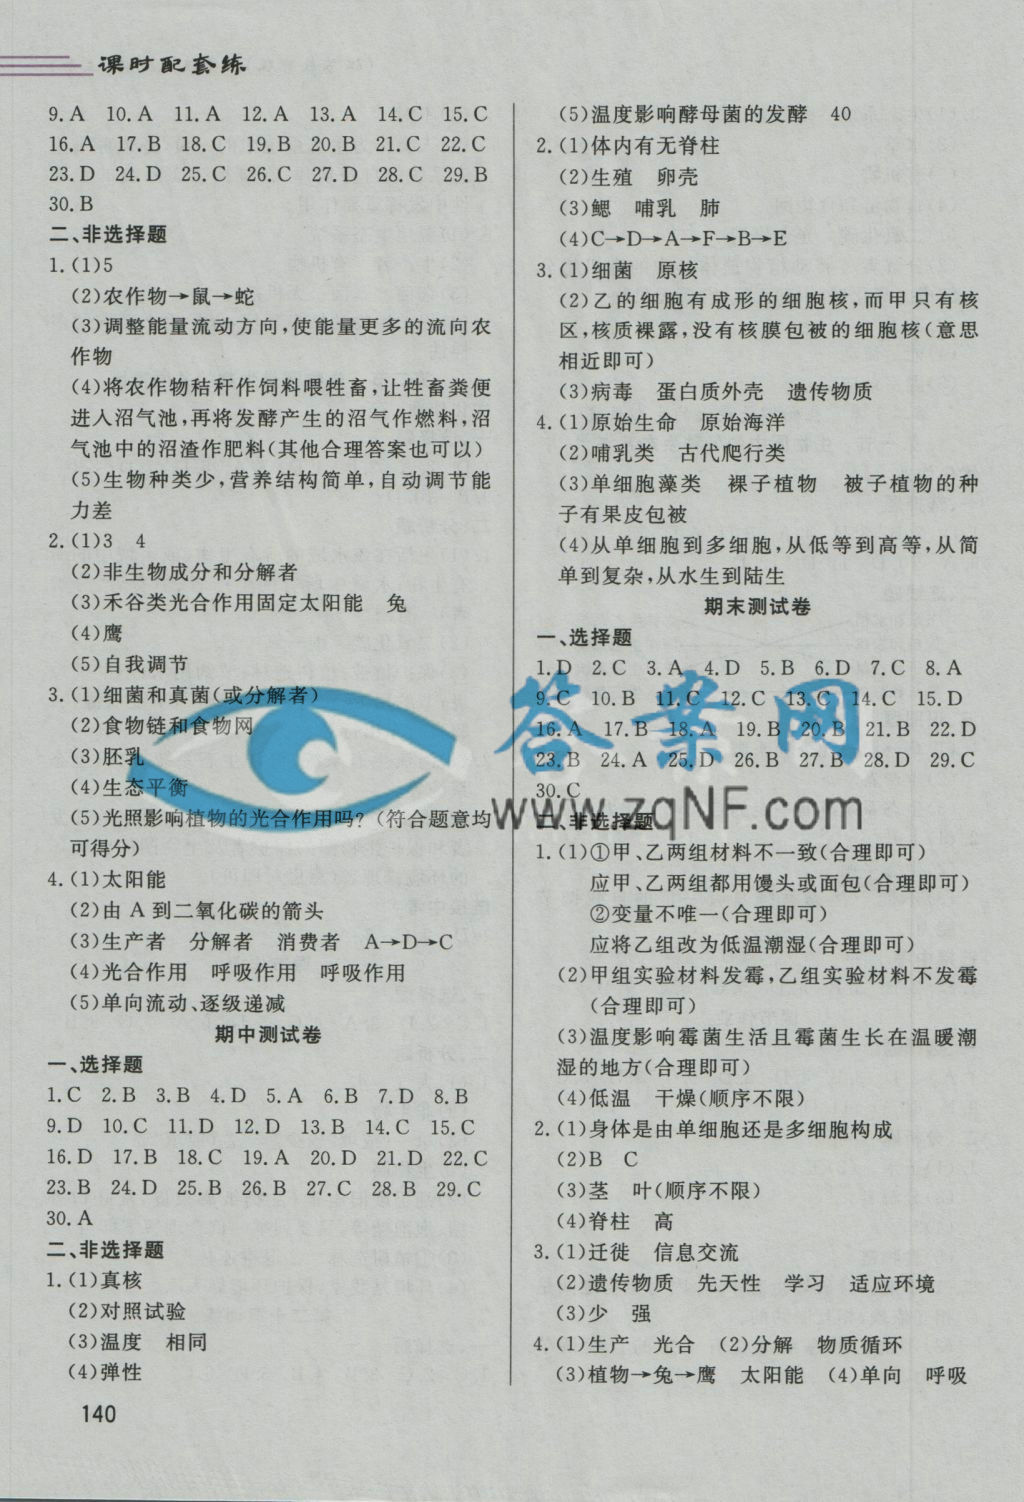 课时配套练
9.A 10.A 11.A 12.A 13.A 14.C 15.C
16.A 17.B 18.C 19.B 20.B 21.C 22.C
23.D 24.D 25.C 26.C 27.D 28.C 29.B
30.B
二、非选择题
1.(1)5
(2)农作物→鼠→蛇
(3)调整能量流动方向,使能量更多的流向农
作物
(4)将农作物秸秆作饲料喂牲畜,让牲畜粪便
进入沼气池,再将发酵产生的沼气作燃料,沼
气池中的沼渣作肥料(其他合理答案也可以)
(5)生物种类少,营养结构简单,自动调节能
力差
2.(1)3 4
(2)非生物成分和分解者
(3)禾谷类光合作用固定太阳能 兔
(4)鹰
(5)自我调节
3.(1)细菌和真菌(或分解者)
(2)食物链和食物网
(3)胚乳
(4)生态平衡
(5)光照影响植物的光合作用吗?(符合题意均
可得分)
4.(1)太阳能
(2)由 A 到二氧化碳的箭头
(3)生产者 分解者 消费者 A→D→C
(4)光合作用 呼吸作用 呼吸作用
(5)单向流动、逐级递减
期中测试卷
一、选择题
1.C 2.B 3.B 4.D 5.A 6.B 7.D 8.B
9.D 10.C 11.D 12.D 13.B 14.C 15.C
16.D 17.B 18.C 19.A 20.D 21.D 22.C
23.B 24.D 25.B 26.B 27.C 28.B 29.C
30.A
二、非选择题
1.(1)真核
(2)对照试验
(3)温度 相同
(4)弹性
(5)温度影响酵母菌的发酵 40
2.(1)体内有无脊柱
(2)生殖 卵壳
(3)鳃 哺乳 肺
(4)C→D→A→F→B→E
3.(1)细菌 原核
(2)乙的细胞有成形的细胞核,而甲只有核
区,核质裸露,没有核膜包被的细胞核(意思
相近即可)
(3)病毒 蛋白质外壳 遗传物质
4.(1)原始生命 原始海洋
(2)哺乳类 古代爬行类
(3)单细胞藻类 裸子植物 被子植物的种
子有果皮包被
(4)从单细胞到多细胞,从低等到高等,从简
单到复杂,从水生到陆生
期末测试卷
一、选择题
1.D 2.C 3.A 4.D 5.B 6.D 7.C 8.A
9.C 10.B 11.C 12.C 13.C 14.C 15.D
16.A 17.B 18.A 19.B 20.B 21.B 22.D
23.B 24.A 25.D 26.B 27.B 28.D 29.C
30.C
二、非选择题
1.(1)①甲、乙两组材料不一致(合理即可)
应甲、乙两组都用馒头或面包(合理即可)
②变量不唯一(合理即可)
应将乙组改为低温潮湿(合理即可)
(2)甲组实验材料发霉,乙组实验材料不发霉
(合理即可)
(3)温度影响霉菌生活且霉菌生长在温暖潮
湿的地方(合理即可)
(4)低温 干燥(顺序不限)
2.(1)身体是由单细胞还是多细胞构成
(2)B C
(3)茎 叶(顺序不限)
(4)脊柱 高
3.(1)迁徙 信息交流
(2)遗传物质 先天性 学习 适应环境
(3)少 强
4.(1)生产 光合 (2)分解 物质循环
(3)植物→兔→鹰 太阳能 (4)单向 呼吸
答案网
www.zqNF.com
140